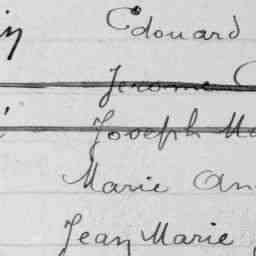 Edouard
Jerome
Joseph Ma
Marie An
Jean Marie